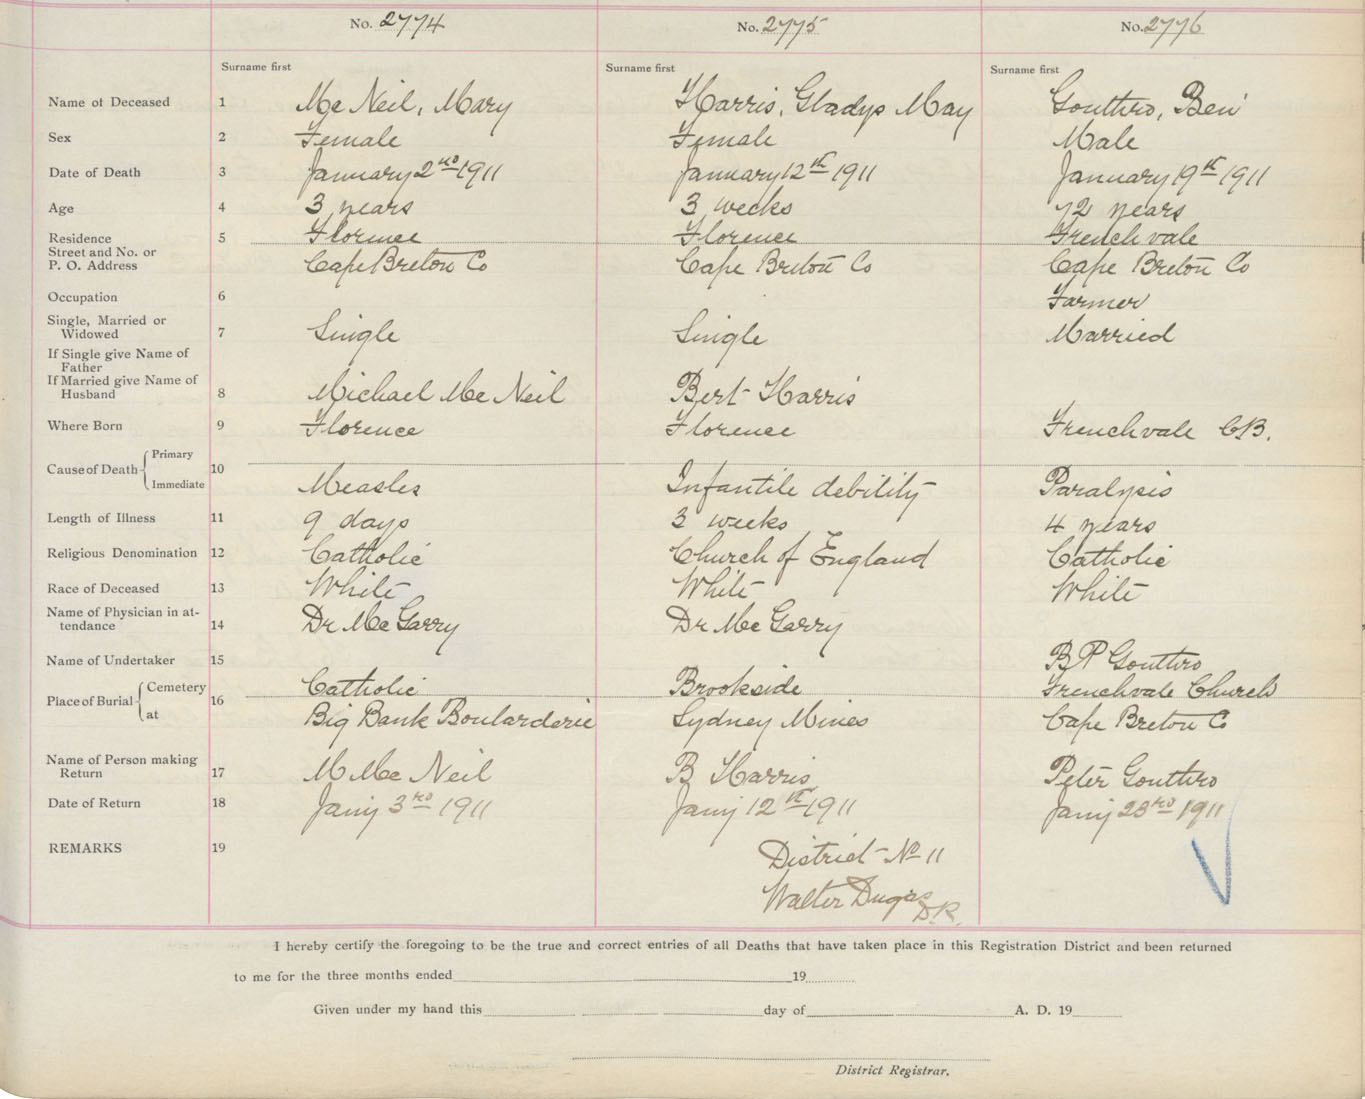 No. 2774 No. 2775 No. 2776
Surname first Surname first Surname first
Name of Deceased 1 Mc Neil, Mary Harris, Gladys May Gouthro, Ben
Sex 2 Female Female Male
Date of Death 3 January 2nd 1911 January 12th 1911 January 19th 1911
Age 4 3 years 3 weeks 72 years
Residence 5 Florence Florence Frenchvale
Street and No. or
P. O. Address Cape Breton Co Cape Breton Co Cape Breton Co
Occupation 6 Farmer
Single, Married or
Widowed 7 Single Single Married
If Single give Name of
Father
If Married give Name of
Husband 8 Michael Mc Neil Bert Harris
Where Born 9 Florence Florence Frenchvale CB.
Cause of Death Primary 10
Immediate Measles Infantile debility Paralysis
Length of Illness 11 9 days 3 weeks 4 years
Religious Denomination 12 Catholic Church of England Catholic
Race of Deceased 13 White White White
Name of Physician in at-
tendance 14 Dr Mc Garry Dr Mc Garry
Name of Undertaker 15 B P Gouthro
Place of Burial Cemetery 16 Catholic Brookside Frenchvale Church
at Big Bank Boularderie Sydney Mines Cape Breton Co
Name of Person making
Return 17 M Mc Neil B Harris Peter Gouthro
Date of Return 18 Jany 3rd 1911 Jany 12th 1911 Jany 23rd 1911
REMARKS 19 District No 11
Walter Dugas
D.R.
I hereby certify the foregoing to be the true and correct entries of all Deaths that have taken place in this Registration District and been returned
to me for the three months ended 19
Given under my hand this day of A. D. 19
District Registrar.